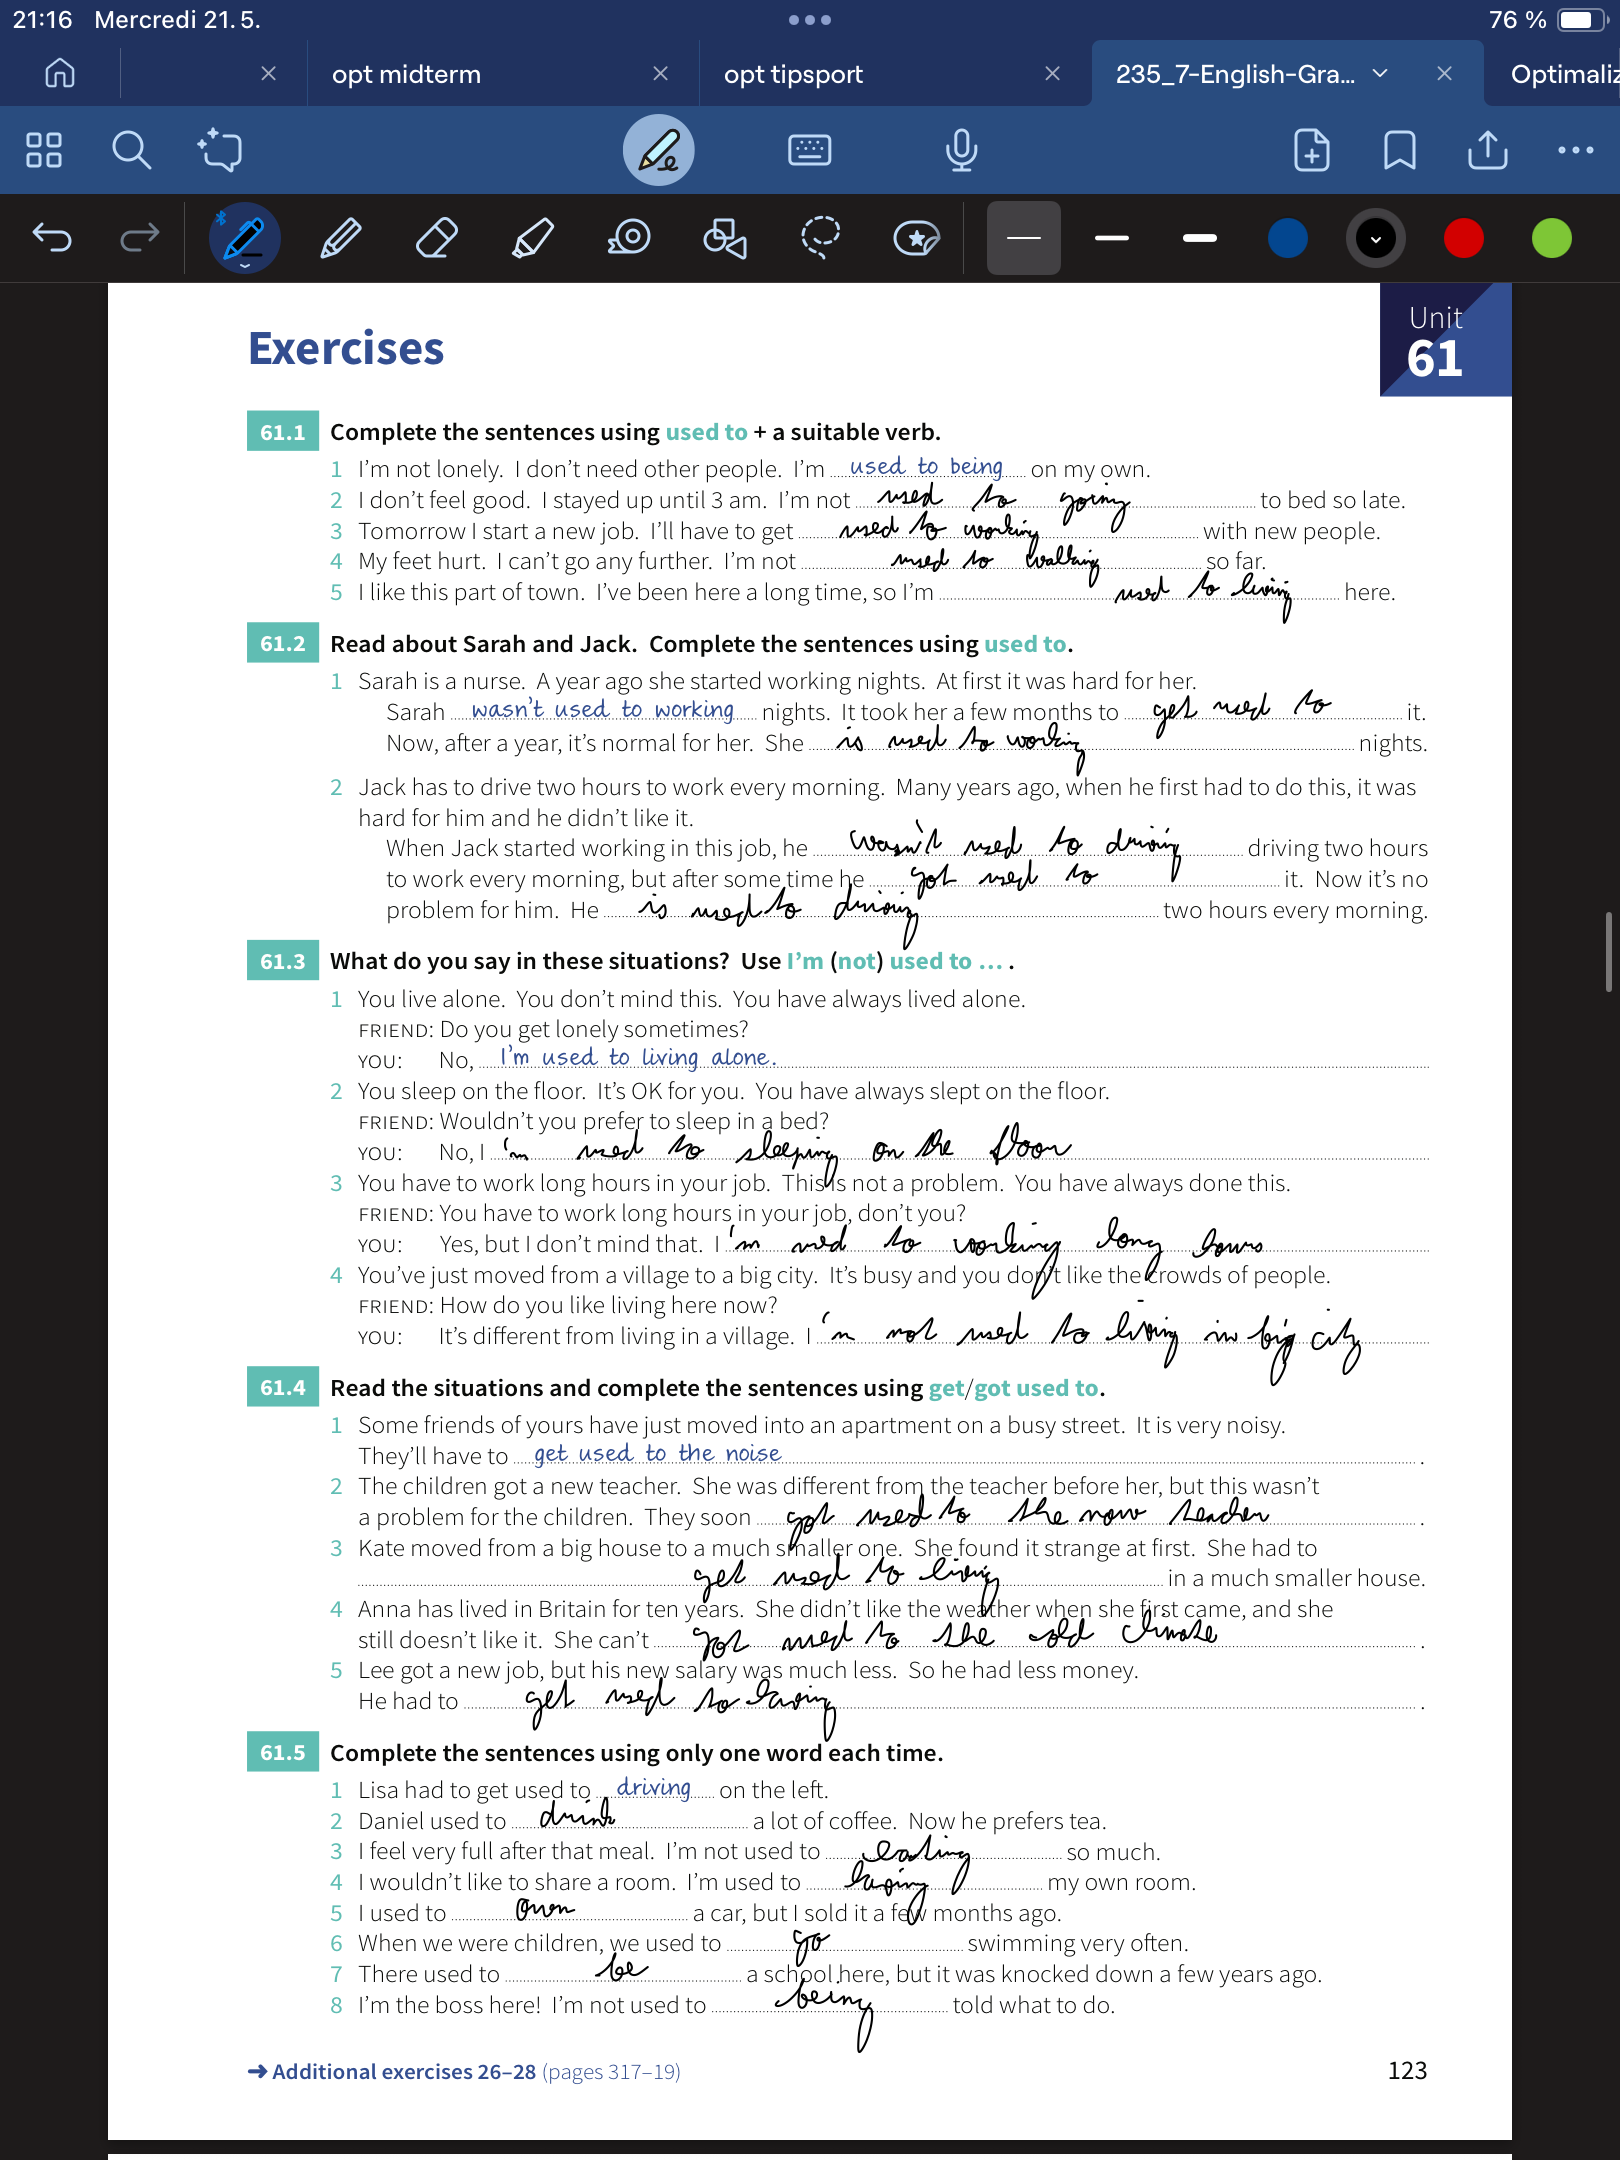 21:16 Mercredi 21. 5. 76 %
opt midterm opt tipsport 235_7-English-Gra... Optimaliz
Unit
61
Exercises
61.1 Complete the sentences using used to + a suitable verb.
1 I'm not lonely. I don't need other people. I'm used to being on my own.
2 I don't feel good. I stayed up until 3 am. I'm not used to going to bed so late.
3 Tomorrow I start a new job. I'll have to get used to working with new people.
4 My feet hurt. I can't go any further. I'm not used to walking so far.
5 I like this part of town. I've been here a long time, so I'm used to living here.
61.2 Read about Sarah and Jack. Complete the sentences using used to.
1 Sarah is a nurse. A year ago she started working nights. At first it was hard for her.
Sarah wasn't used to working nights. It took her a few months to get used to it.
Now, after a year, it's normal for her. She is used to working nights.
2 Jack has to drive two hours to work every morning. Many years ago, when he first had to do this, it was
hard for him and he didn't like it.
When Jack started working in this job, he wasn't used to driving driving two hours
to work every morning, but after some time he got used to it. Now it's no
problem for him. He is used to driving two hours every morning.
61.3 What do you say in these situations? Use I'm (not) used to ... .
1 You live alone. You don't mind this. You have always lived alone.
FRIEND: Do you get lonely sometimes?
YOU: No, I'm used to living alone.
2 You sleep on the floor. It's OK for you. You have always slept on the floor.
FRIEND: Wouldn't you prefer to sleep in a bed?
YOU: No, I 'm used to sleeping on the floor
3 You have to work long hours in your job. This is not a problem. You have always done this.
FRIEND: You have to work long hours in your job, don't you?
YOU: Yes, but I don't mind that. I 'm used to working long hours
4 You've just moved from a village to a big city. It's busy and you don't like the crowds of people.
FRIEND: How do you like living here now?
YOU: It's different from living in a village. I 'm not used to living in big city
61.4 Read the situations and complete the sentences using get/got used to.
1 Some friends of yours have just moved into an apartment on a busy street. It is very noisy.
They'll have to get used to the noise .
2 The children got a new teacher. She was different from the teacher before her, but this wasn't
a problem for the children. They soon got used to the new teacher .
3 Kate moved from a big house to a much smaller one. She found it strange at first. She had to
get used to living in a much smaller house.
4 Anna has lived in Britain for ten years. She didn't like the weather when she first came, and she
still doesn't like it. She can't got used to the cold climate .
5 Lee got a new job, but his new salary was much less. So he had less money.
He had to get used to having .
61.5 Complete the sentences using only one word each time.
1 Lisa had to get used to driving on the left.
2 Daniel used to drink a lot of coffee. Now he prefers tea.
3 I feel very full after that meal. I'm not used to eating so much.
4 I wouldn't like to share a room. I'm used to having my own room.
5 I used to own a car, but I sold it a few months ago.
6 When we were children, we used to go swimming very often.
7 There used to be a school here, but it was knocked down a few years ago.
8 I'm the boss here! I'm not used to being told what to do.
➜ Additional exercises 26–28 (pages 317–19) 123